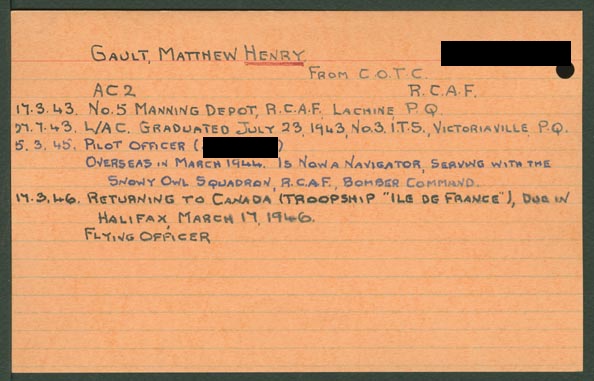 GAULT, MATTHEW HENRY
FROM C.O.T.C.
AC2 R.C.A.F.
17.3.43. NO.5 MANNING DEPOT, R.C.A.F. LACHINE P.Q.
27.7.43. L/AC. GRADUATED JULY 23, 1943, NO.3. I.T.S., VICTORIAVILLE, P.Q.
5.3.45. PILOT OFFICER ( )
OVERSEAS IN MARCH 1944. IS NOW A NAVIGATOR, SERVING WITH THE
SNOWY OWL SQUADRON, R.C.A.F., BOMBER COMMAND.
17.3.46. RETURNING TO CANADA (TROOPSHIP "ILE DE FRANCE"), DUE IN
HALIFAX MARCH 17, 1946.
FLYING OFFICER